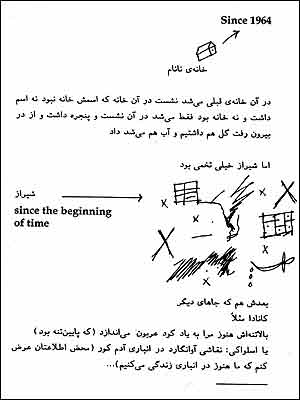 Since 1964
خانه‌ی نانام
در آن خانه‌ی قبلی می‌شد نشست در آن خانه که اسمش خانه نبود نه اسم
داشت و نه خانه بود فقط می‌شد در آن نشست و پنجره داشت و از در
بیرون رفت گل هم داشتیم و آب هم می‌شد داد
اما شیراز خیلی تخمی بود
شیراز
since the beginning
of time
بعدش هم که جاهای دیگر
کانادا مثلاً
بالاتنه‌اش هنوز مرا به یاد کرد عربون می‌اندازد (که پایین‌تنه بود)
یا اسلواکی: نقاشی آوانگارد در انباری آدم کور (محض اطلاعتان عرض
کنم که ما هنوز در انباری زندگی می‌کنیم)...